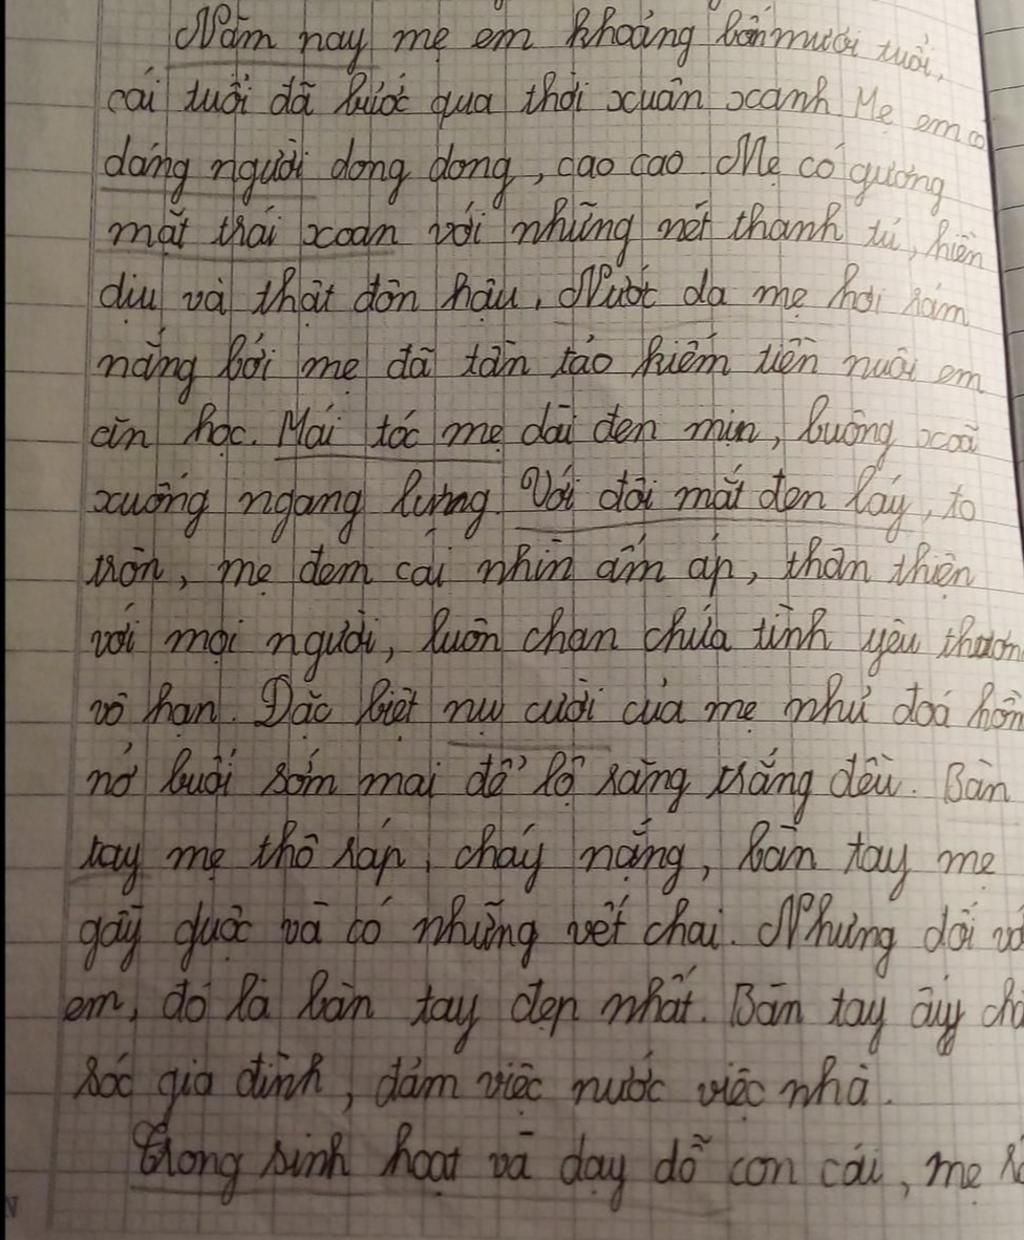 Năm nay mẹ em khoảng bốn mươi tuổi,
cái tuổi đã bước qua thời xuân xanh. Mẹ em có
dáng người dong dong, cao cao. Mẹ có gương
mặt trái xoan với những nét thanh tú, hiền
dịu và thật đôn hậu. Nước da mẹ hơi rám
nắng bởi mẹ đã tần tảo kiếm tiền nuôi em
ăn học. Mái tóc mẹ dài đen mịn, buông xoã
xuống ngang lưng. Với đôi mắt đen láy, to
tròn, mẹ đem cái nhìn ấm áp, thân thiện
với mọi người, luôn chan chứa tình yêu thươn
vô hạn. Đặc biệt nụ cười của mẹ như đoá hồn
nở buổi sớm mai để lộ răng trắng đều. Bàn
tay mẹ thô ráp, cháy nắng, bàn tay mẹ
gầy guộc và có những vết chai. Nhưng đối vớ
em, đó là bàn tay đẹp nhất. Bàn tay ấy chă
sóc gia đình, đảm việc nước việc nhà.
Trong sinh hoạt và dạy dỗ con cái, mẹ